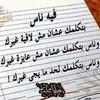 فيه ناس
بتكلمك عشان مش لاقية غيرك
وناس بتكلمك عشان مش عايزة غيرك
وناس بتكلمك لحد ما يجي غيرك !